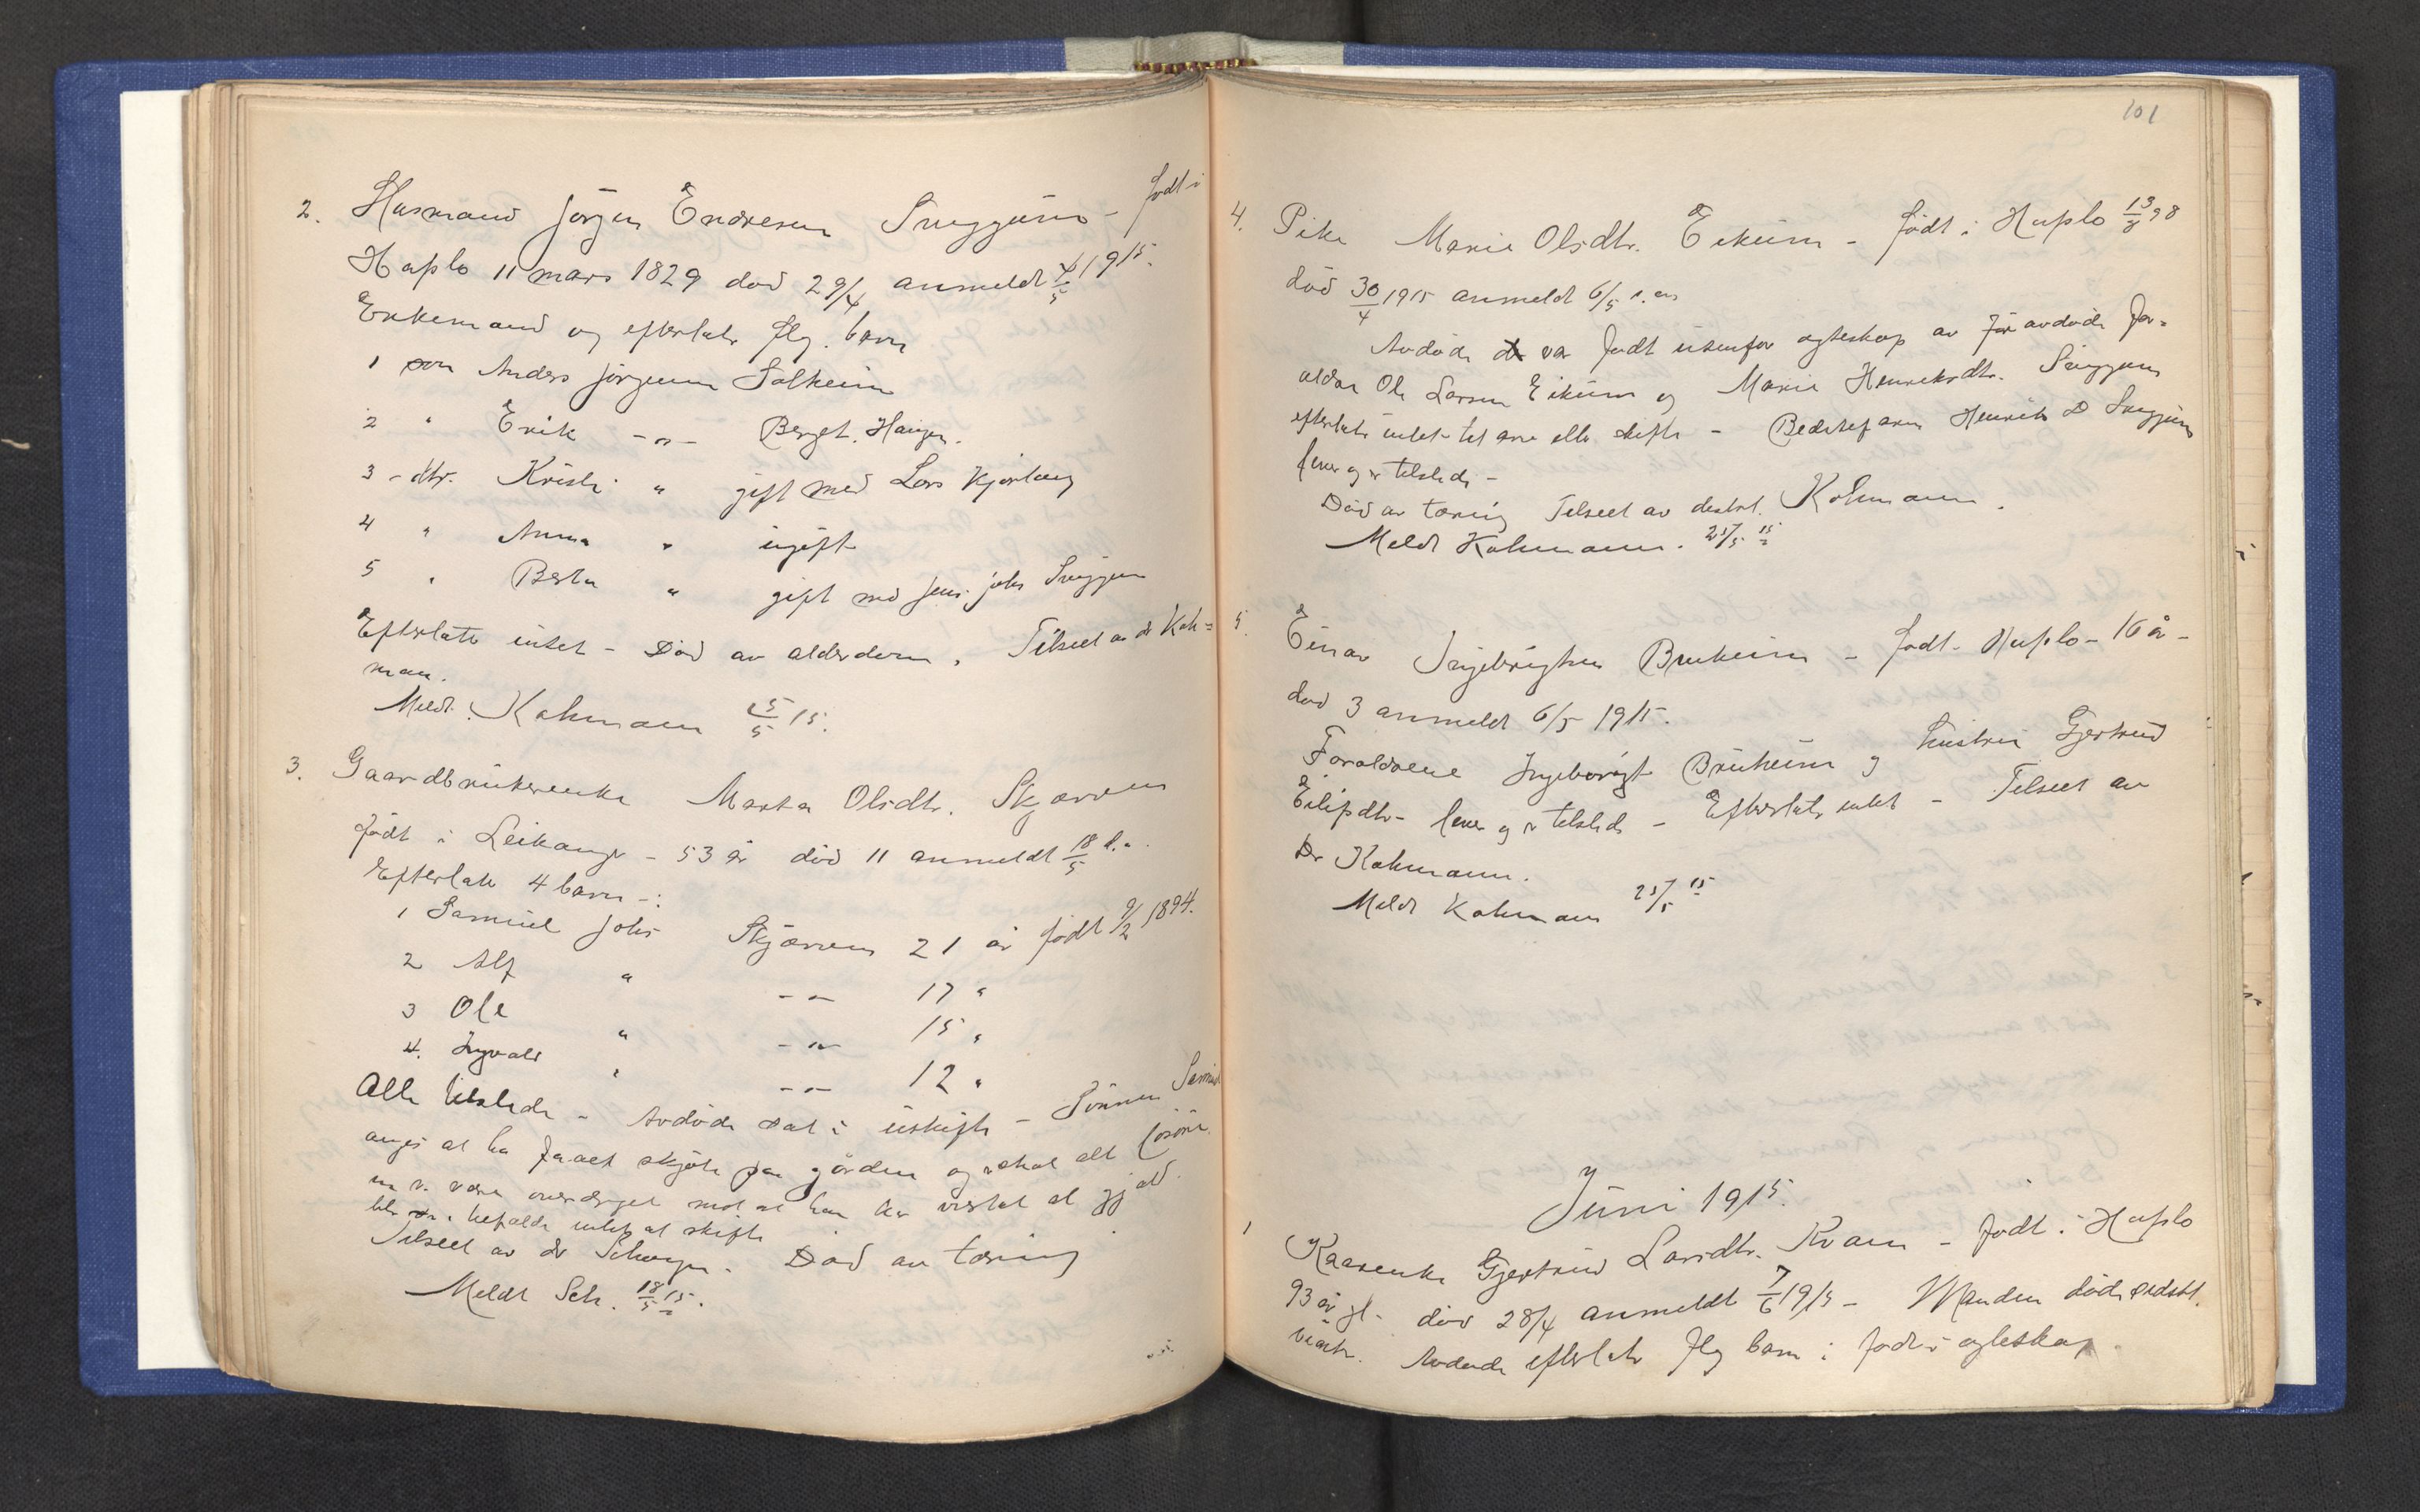 2. Husmand Jørgen Endresen Sneggum - født i
Hafslo 11 mars 1829 död 29/4 anmeldt 4/5 1915.
Enkemand og efterlater flg. barn
1 søn Anders Jørgensen Solheim
2 " Erik -"- Berget. Haugen.
3 - dtr. Kristi " gift med Lars Kjørlaug
4 " Anna " ugift
5 " Berta " gift med Jens Johs Sneggum
Efterlater intet - Död av alderdom. Tilseet av dr Koh=
man.
Meldt. Kohmann 25/5 15.
3. Gaardbrukerenke Marta Olsdtr. Skjærven
född i Leikanger - 53 år död 11 anmeldt 18/5 d.a.
Efterlater 4 barn -:
1 Samuel Johs Skjærven 21 år født 9/2 1894.
2 Alf " -"- 17 "
3 Ole " -"- 15 "
4. Ingvald " -"- 12 "
Alle tilstede - Avdöde sat i uskifte - Sönnen Samuel
angis at ha faaet skjöte paa gården og skal alt lösöre
m v. være overdraget mot at han har overtat al gjæld.
intet at skifte
Tilseet av dr Död av tæring
Meldt Sch. 18/5 15.
101
4. Pike Marie Olsdtr. Eikum - född i Hafslo 98
död 30/4 1915 anmeldt 6/5 s.a.
Avdöde var født utenfor egteskap av før avdøde for=
ældre Ole Larsen Eikum og Marie Henriksdtr. Sneggum
efterlater intet til arv eller skifte - Bedstefaren Henrik D Sneggum
lever og er tilstede -
Död av tæring Tilseet av distrl. Kohmann.
Meldt Kohmann. 25/5 15
5. Einar Ingebrigtsen Bruheim - født Hafslo - 16 år -
död 3 anmeldt 6/5 1915.
Forældrene Ingebrigt Bruheim og hustru Gjertrud
Eilifdtr - lever og er tilstede - Efterlater intet - Tilseet av
Dr Kohmann.
Meldt Kohmann 25/5 15
Juni 1915.
1 Kaarenke Gjertrud Larsdtr. Kvam - født i Hafslo
93 år gl - död 28/4 anmeldt 7/6 1915 - Manden döde sidstl.
vinter. Avdöde efterlater flg barn i født i egteskap.